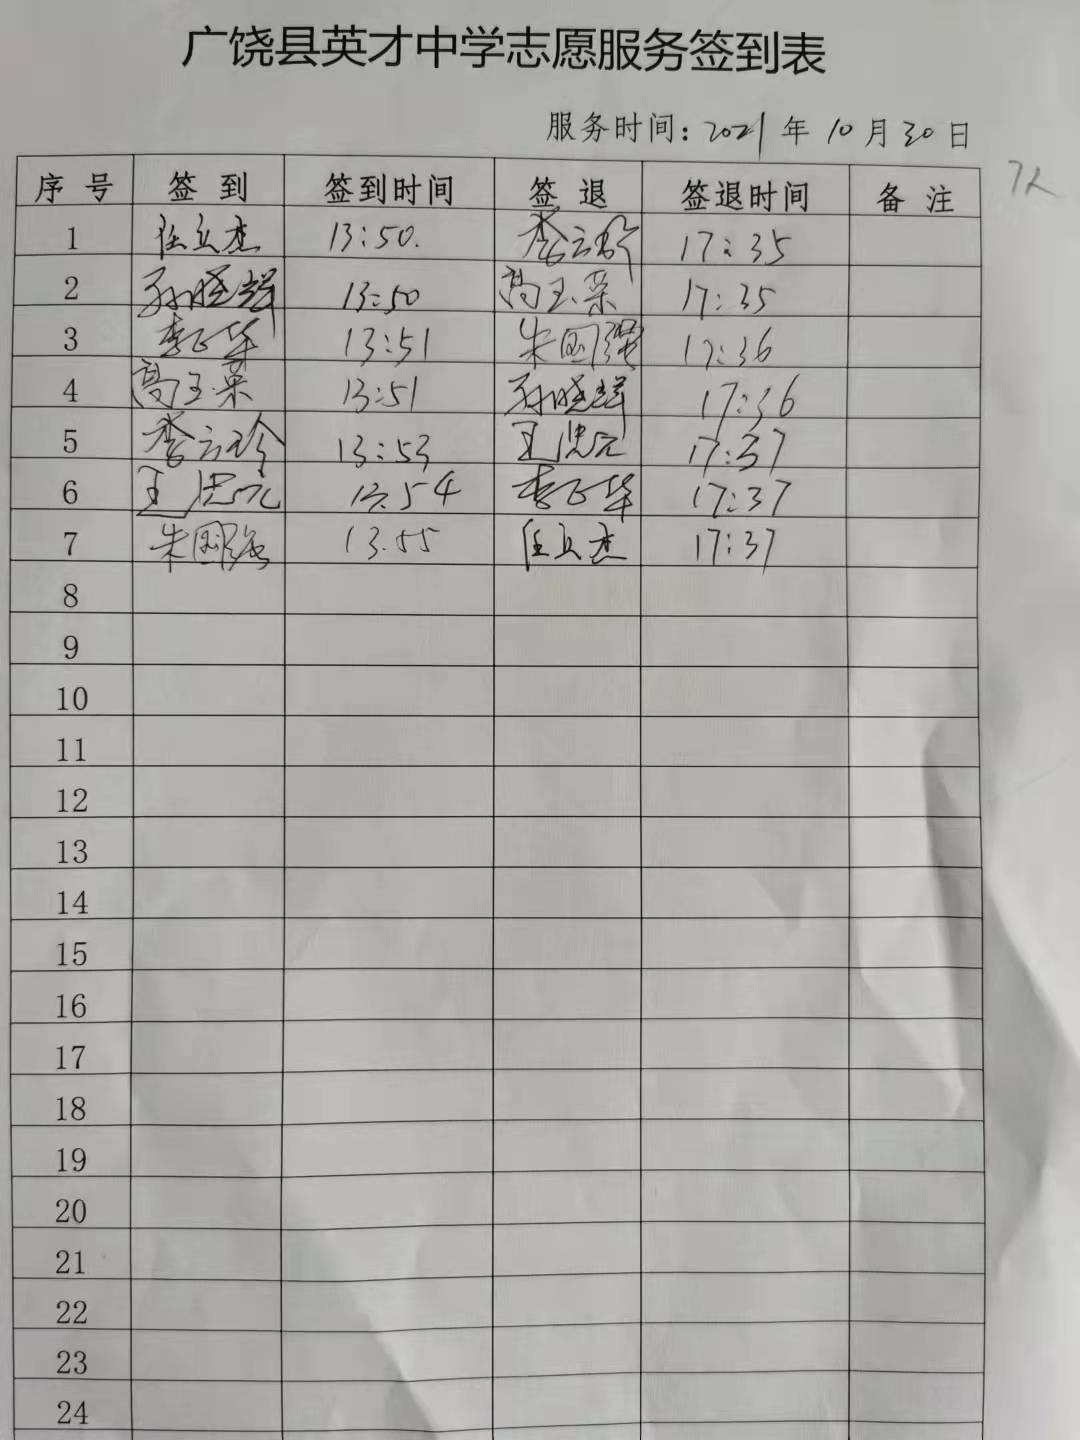 广饶县英才中学志愿服务签到表
服务时间：2021年10月30日
7人
序号 签到 签到时间 签退 签退时间 备注
1 任立杰 13:50. 李云玲 17:35
2 孙晓辉 13:50 高玉荣 17:35
3 李正华 13:51 朱国强 17:36
4 高玉荣 13:51 孙晓辉 17:36
5 李云玲 13:53 王忠元 17:37
6 王忠元 13.54 李正华 17:37
7 朱国强 13.55 任立杰 17:37
8
9
10
11
12
13
14
15
16
17
18
19
20
21
22
23
24